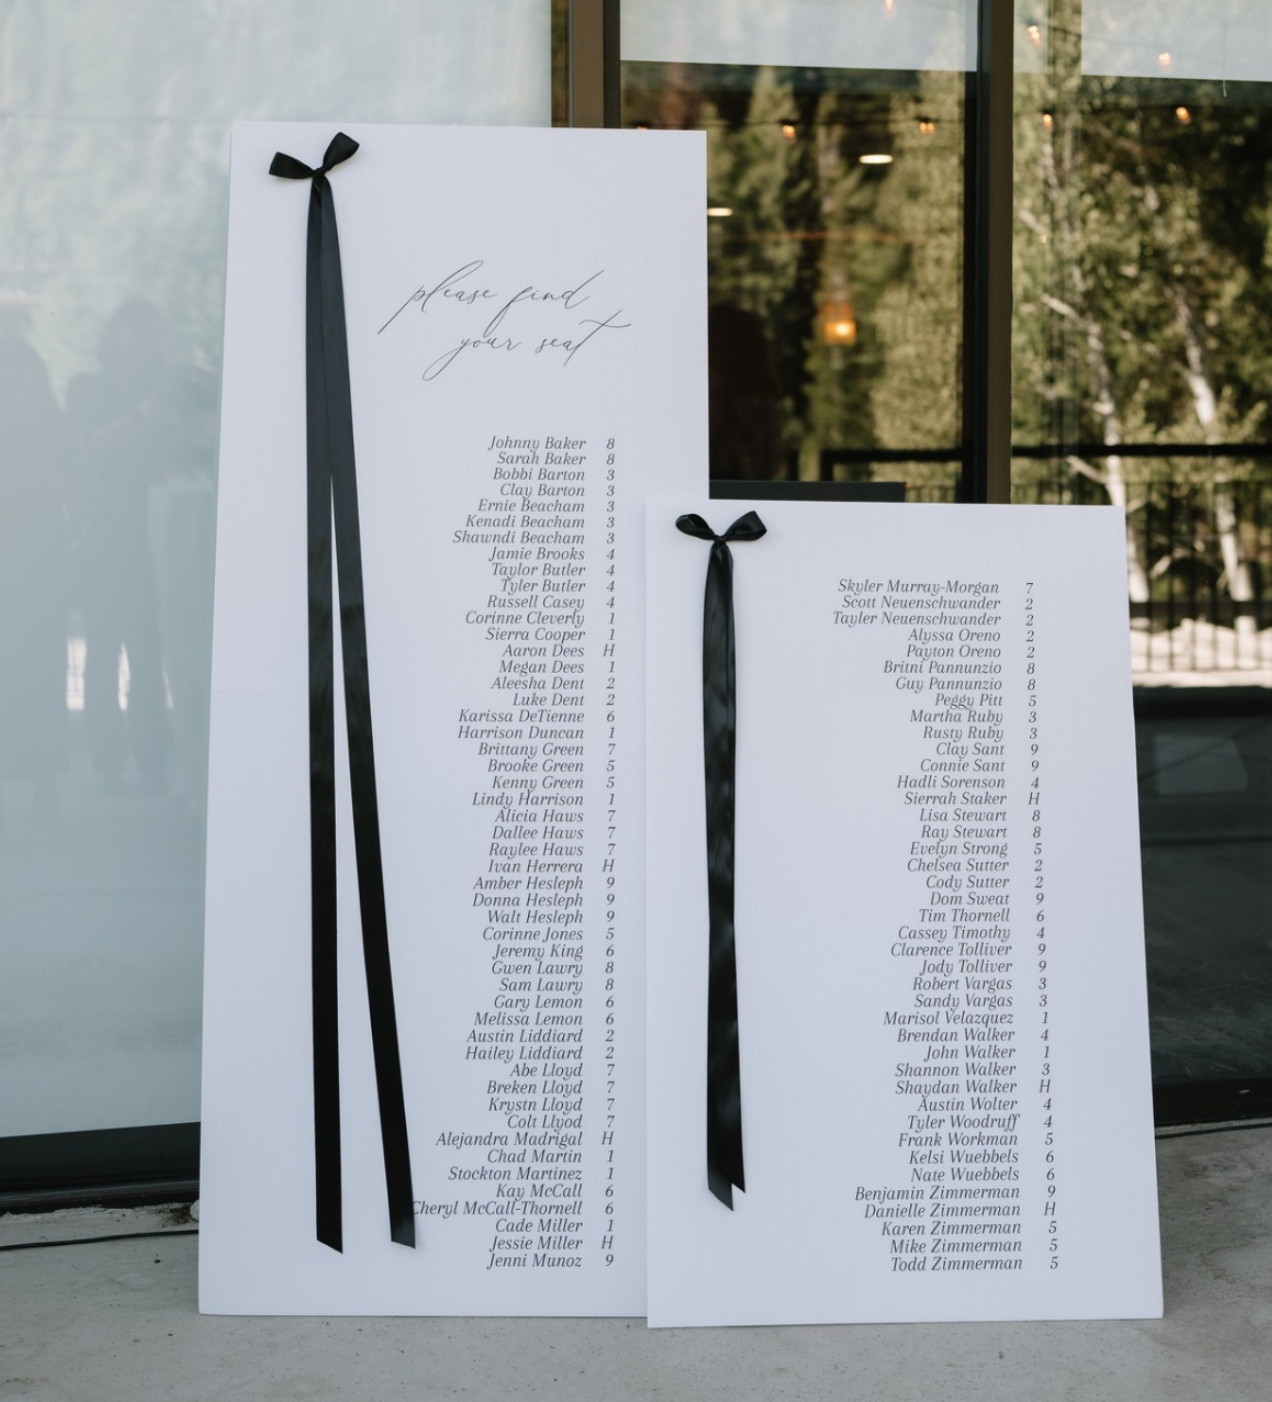 please find
your seat
Johnny Baker 8
Sarah Baker 8
Bobbi Barton 3
Clay Barton 3
Ernie Beacham 3
Kenadi Beacham 3
Shawndi Beacham 3
Jamie Brooks 4
Taylor Butler 4
Tyler Butler 4
Russell Casey 4
Corinne Cleverly 1
Sierra Cooper 1
Aaron Dees H
Megan Dees 1
Aleesha Dent 2
Luke Dent 2
Karissa DeTienne 6
Harrison Duncan 1
Brittany Green 7
Brooke Green 5
Kenny Green 5
Lindy Harrison 1
Alicia Haws 7
Dallee Haws 7
Raylee Haws 7
Ivan Herrera H
Amber Hesleph 9
Donna Hesleph 9
Walt Hesleph 9
Corinne Jones 5
Jeremy King 6
Gwen Lawry 8
Sam Lawry 8
Gary Lemon 6
Melissa Lemon 6
Austin Liddiard 2
Hailey Liddiard 2
Abe Lloyd 7
Breken Lloyd 7
Krystn Lloyd 7
Colt Llyod 7
Alejandra Madrigal H
Chad Martin 1
Stockton Martinez 1
Kay McCall 6
Cheryl McCall-Thornell 6
Cade Miller 1
Jessie Miller H
Jenni Munoz 9
Skyler Murray-Morgan 7
Scott Neuenschwander 2
Tayler Neuenschwander 2
Alyssa Oreno 2
Payton Oreno 2
Britni Pannunzio 8
Guy Pannunzio 8
Peggy Pitt 5
Martha Ruby 3
Rusty Ruby 3
Clay Sant 9
Connie Sant 9
Hadli Sorenson 4
Sierrah Staker H
Lisa Stewart 8
Ray Stewart 8
Evelyn Strong 5
Chelsea Sutter 2
Cody Sutter 2
Dom Sweat 9
Tim Thornell 6
Cassey Timothy 4
Clarence Tolliver 9
Jody Tolliver 9
Robert Vargas 3
Sandy Vargas 3
Marisol Velazquez 1
Brendan Walker 4
John Walker 1
Shannon Walker 3
Shaydan Walker H
Austin Wolter 4
Tyler Woodruff 4
Frank Workman 5
Kelsi Wuebbels 6
Nate Wuebbels 6
Benjamin Zimmerman 9
Danielle Zimmerman H
Karen Zimmerman 5
Mike Zimmerman 5
Todd Zimmerman 5